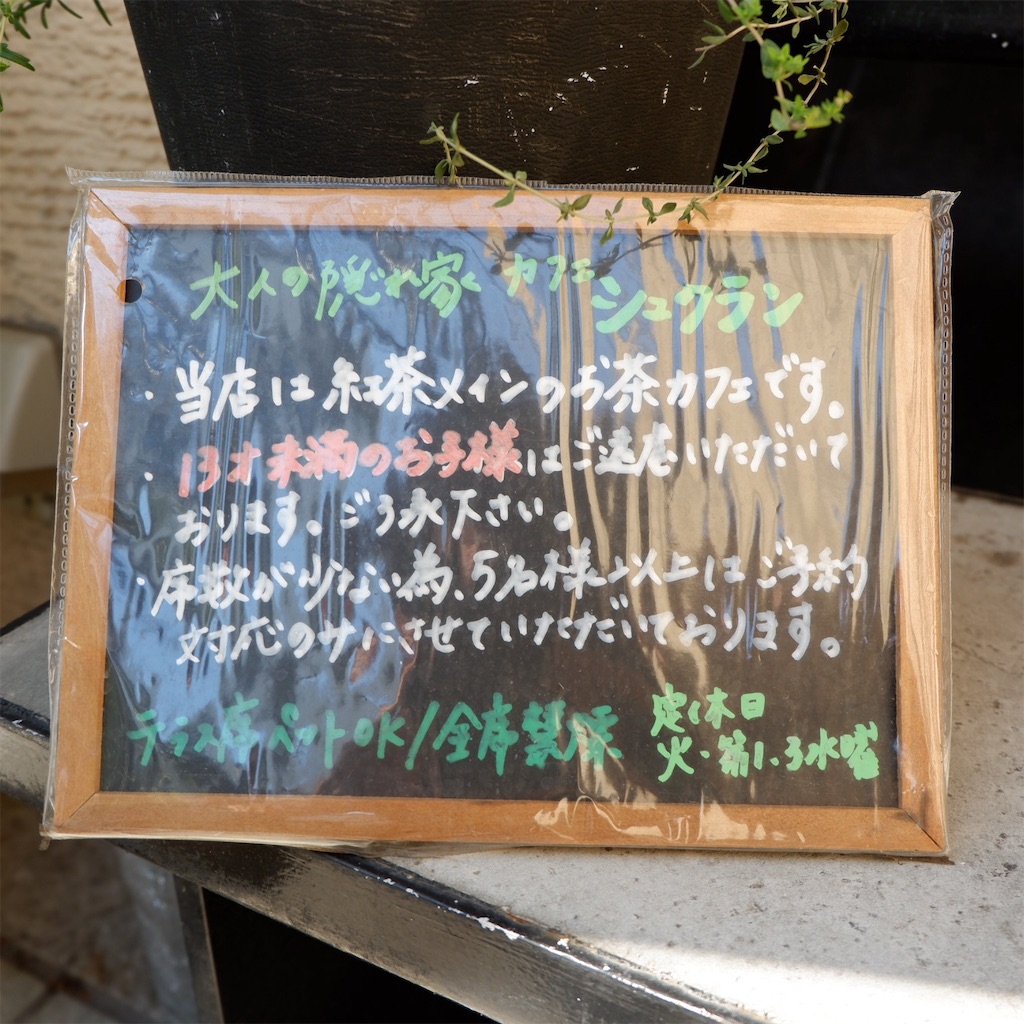 大人の隠れ家 カフェ シュクラン
・当店は紅茶メインのお茶カフェです。
・13才未満のお子様はご遠慮いただいて
おります。ご了承下さい。
・席数が少ない為、5名様以上はご予約
対応のみにさせていただいております。
テラス席ペットOK/全席禁煙
定休日
火・第1.3水曜